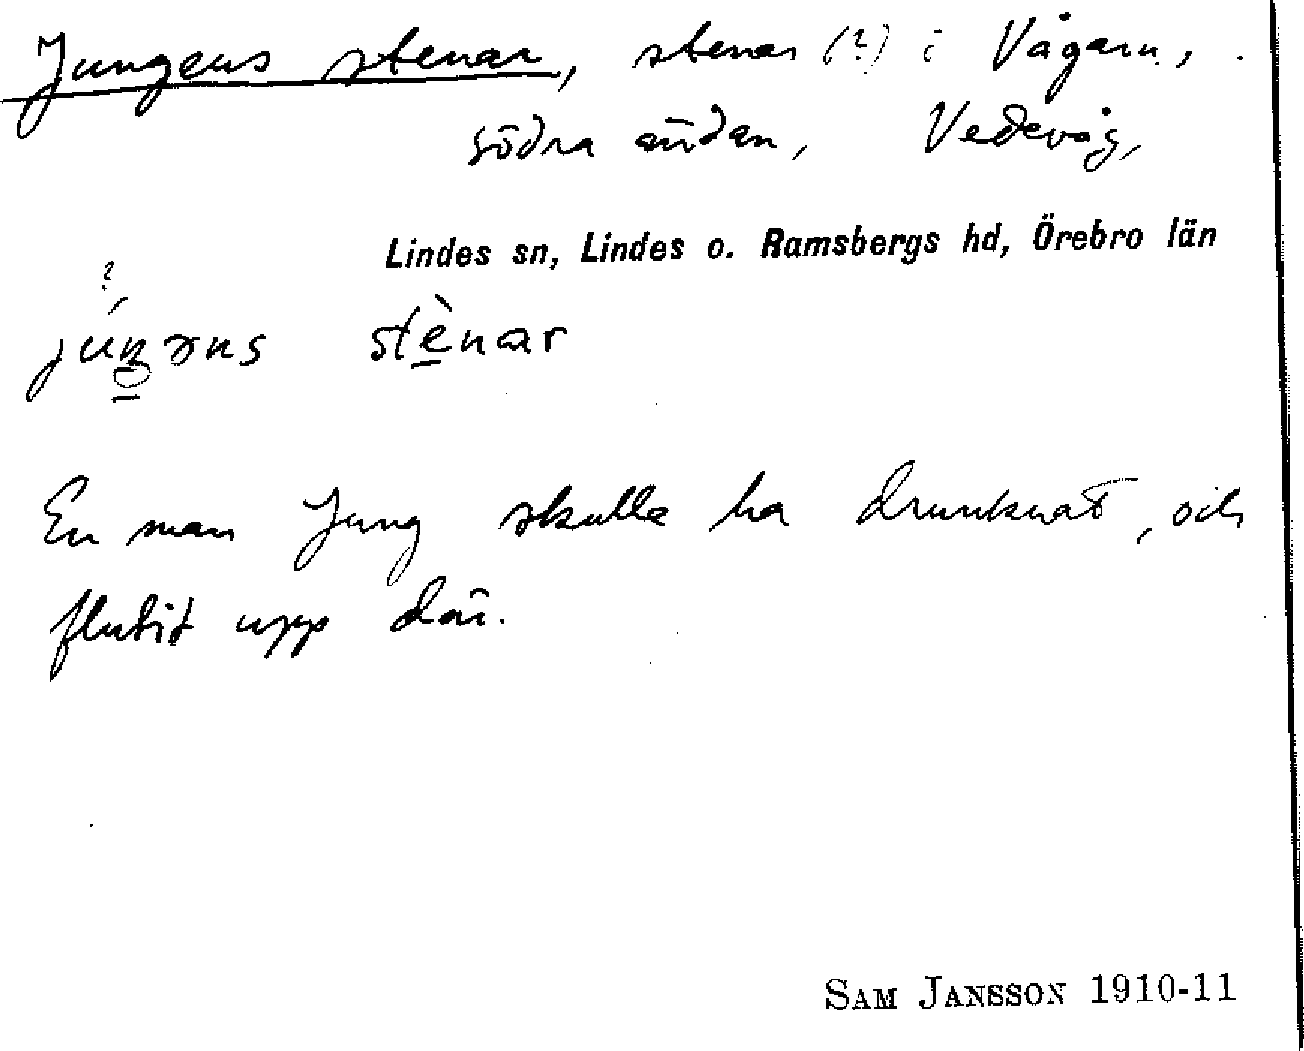 Jungens stenar, stenar (?) i Vågarn,
södra ändan, Vedevåg,
Lindes sn, Lindes o. Ramsbergs hd, Örebro län
?
stènar
En man Jung skulle ha drunknat, och
flutit upp där.
SAM JANSSON 1910-11